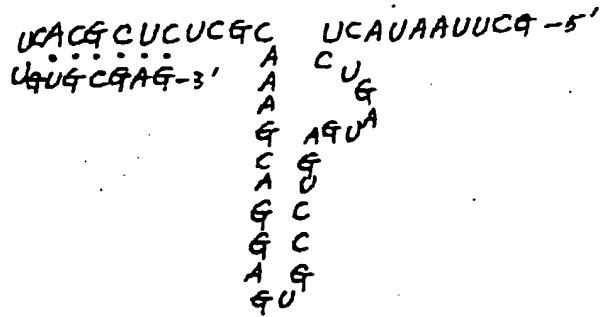 UCACGCUCUCGC UCAUAAUUCG-5'
UGUGCGAG-3' A C
A U
A G
G A
AGU
C G
A U
G C
G C
A G
GU